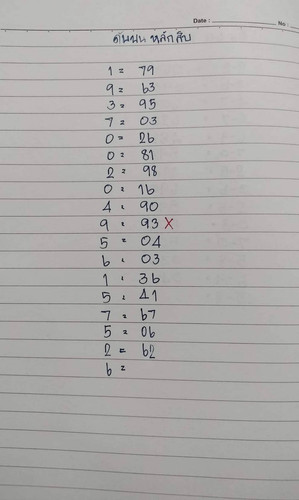 Date :
No
ดับบน หลักสิบ
1 = 79
9 = 63
3 = 95
7 = 03
0 = 26
0 = 81
2 = 98
0 = 16
4 = 90
9 = 93 X
5 = 04
6 = 03
1 = 36
5 = 41
7 = 67
5 = 06
2 = 62
6 =